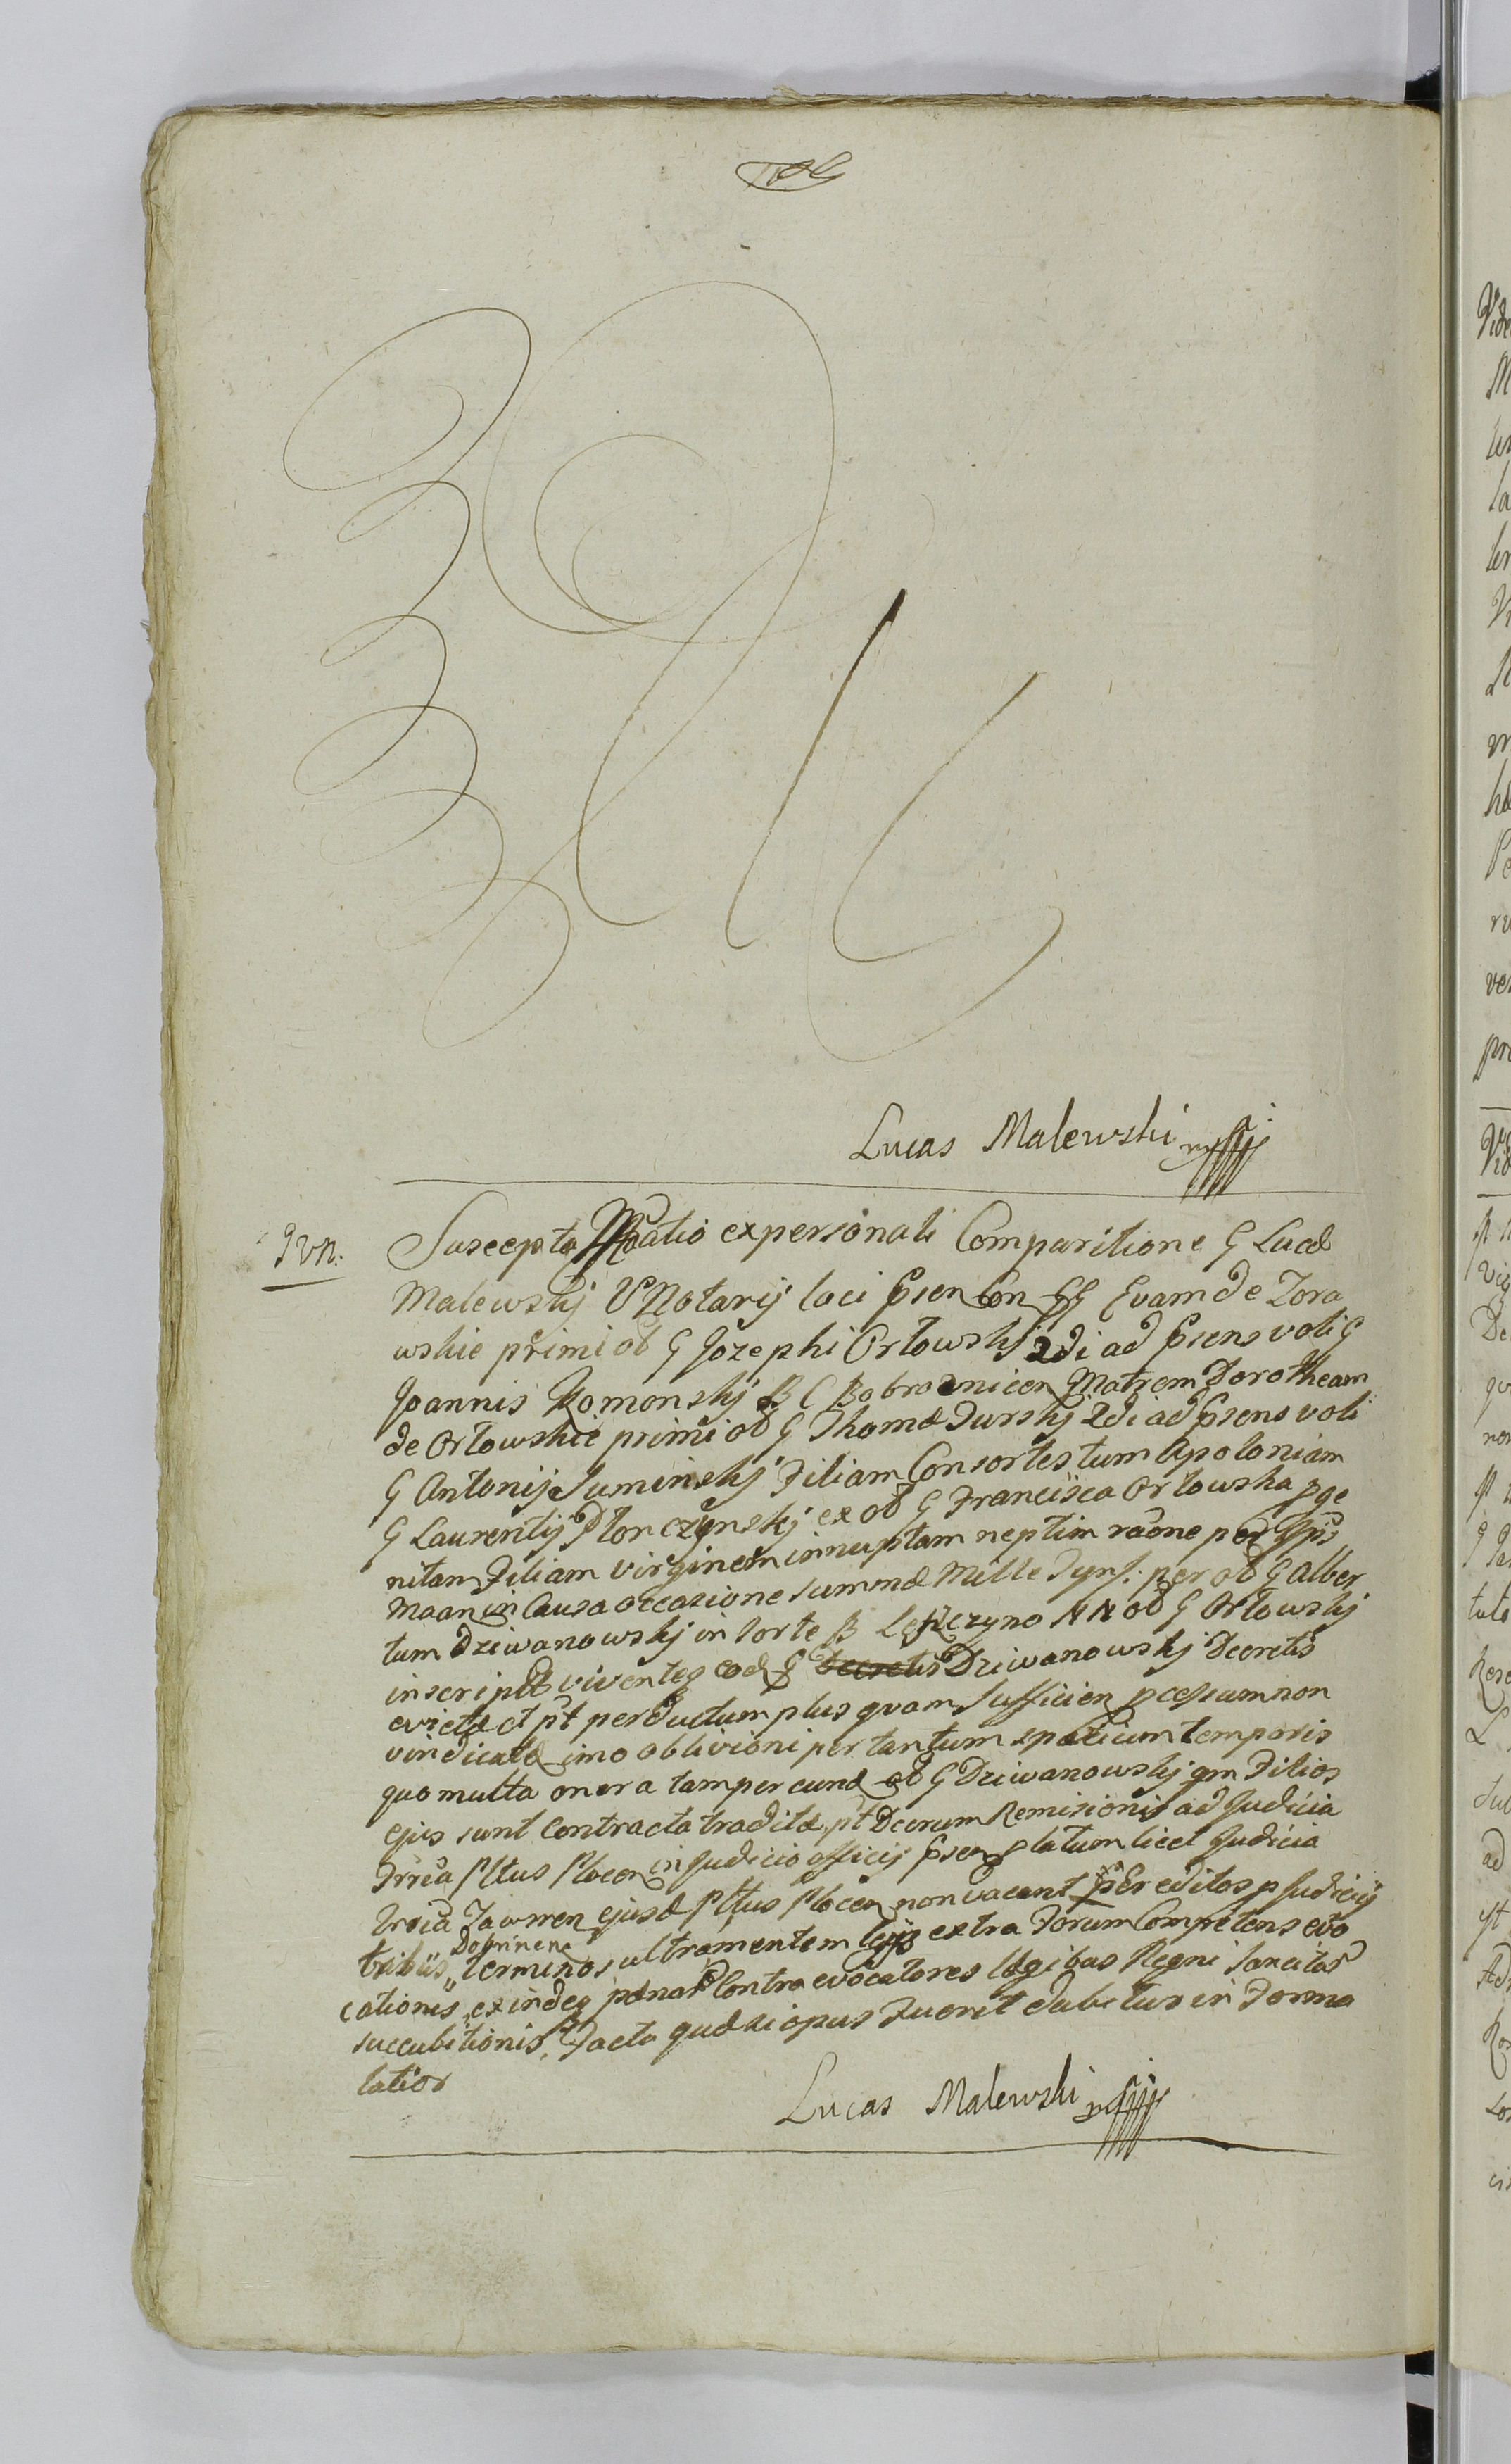 Lucas Malewski mp
Suscepta Mtatio ex personali Comparitione G Lucæ
Malewskj V Notarij loci psen Con GG Evam de Zora
wskie primi ol G Jozephi Orłowskj 2di ad psens voti G
Joannis Romonskj B C Bobrownicen Matrem Dorotheam
de Orłowskie primi ol G Thomæ Turskj 2di ad psens voti
G Antonij Sumińskj Filiam Consortes tum Apoloniam
G Laurentij Płonczynskj ex ol G Francisca Orłowska pge
nitam Filiam virginem innuptam neptim raone
Maan in Causa occasione summæ Mille Tynf: per ol G Alber
tum Dziwanowskj in sorte B NN ol G Orłowskj
inscriptæ viventes eod G Dziwanowskj Decretis
evictæ et pt perductum plus quam sufficien pcessum non
vindicatæ imo oblivioni per tantum spatium temporis
quo multa onera tam per eund ol G Dziwanowskj qm Filios
ejus sunt contracta traditæ pt Decrum Remisionis ad Judicia
Trria Pltus Plocen in Judicio officij psen latum licet Judicia
Trria ejusd Pltus Plocen non vacent per editos p Judicijs
tribüs „ Dobrinen terminos ultra mentem legis extra Forum Competens evo
cationis, exindeq pænar contra evocatores legibus Regni sancitar
succubitionis, Facta quæ si opus Fuerit dabitur in Forma
latior
Lucas Malewski mp